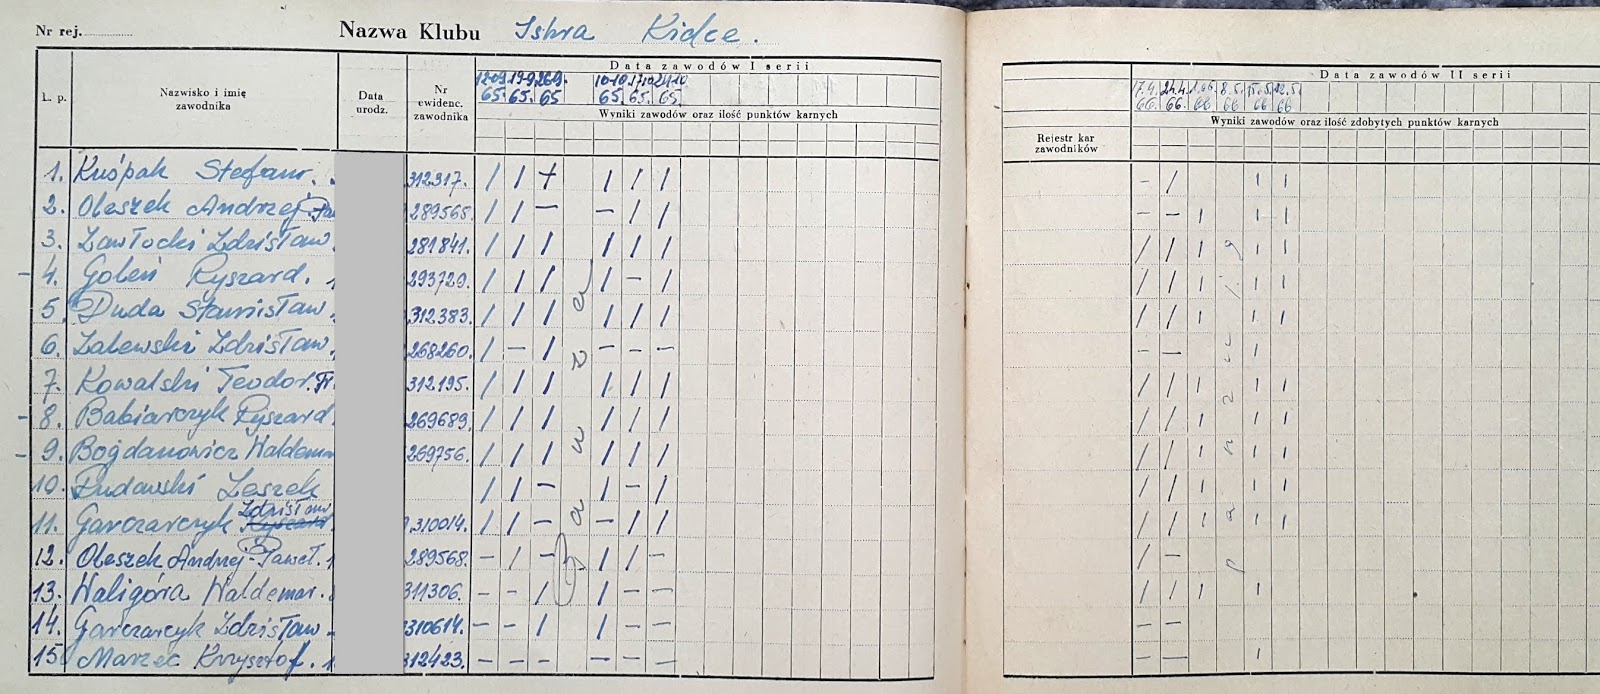 Nr rej. Nazwa Klubu Iskra Kielce.
L. p. Nazwisko i imię zawodnika Data urodz. Nr ewidenc. zawodnika Data zawodów I serii
12.09. 19-9 26.9. 10-10 17.10 24.10
65. 65. 65 65. 65. 65.
Wyniki zawodów oraz ilość punktów karnych
1. Kuśpak Stefan. 312317. / / + / / /
2. Oleszek Andrzej 289568. / / — — / /
3. Zawłocki Zdzisław 281841. / / / / / /
4. Goleń Ryszard. 293729. / / / / - /
5. Duda Stanisław 312383. / / / / / /
6. Zalewski Zdzisław. 268260. / - / - - -
7. Kowalski Teodor. 312195. / / / / / /
8. Babiarczyk Ryszard 269689. / / / / / /
9. Bogdanowicz Waldemar 269756. / / / / / /
10. Rudawski Leszek / / - / - /
11. Garczarczyk Zdzisław 310014. / / - - / /
12. Oleszek Andrzej-Paweł. 289568. - / - / / -
13. Waligóra Waldemar. 311306. - - / / - -
14. Garczarczyk Zdzisław 310614. - - / / - -
15 Marzec Krzysztof. 312423. - - - - - -
Pauza
Rejestr kar zawodników Data zawodów II serii
17.4. 24.4. 1.05. 8.5. 15.5. 22.5.
66. 66. 66 66 66 66
Wyniki zawodów oraz ilość zdobytych punktów karnych
- / / /
- - / / /
/ / / / /
/ / / / /
/ / / / /
- - /
/ / / / /
/ / / / /
/ / / / /
/ / / / /
/ / / / /
/ -
/ / / /
- -
- - /